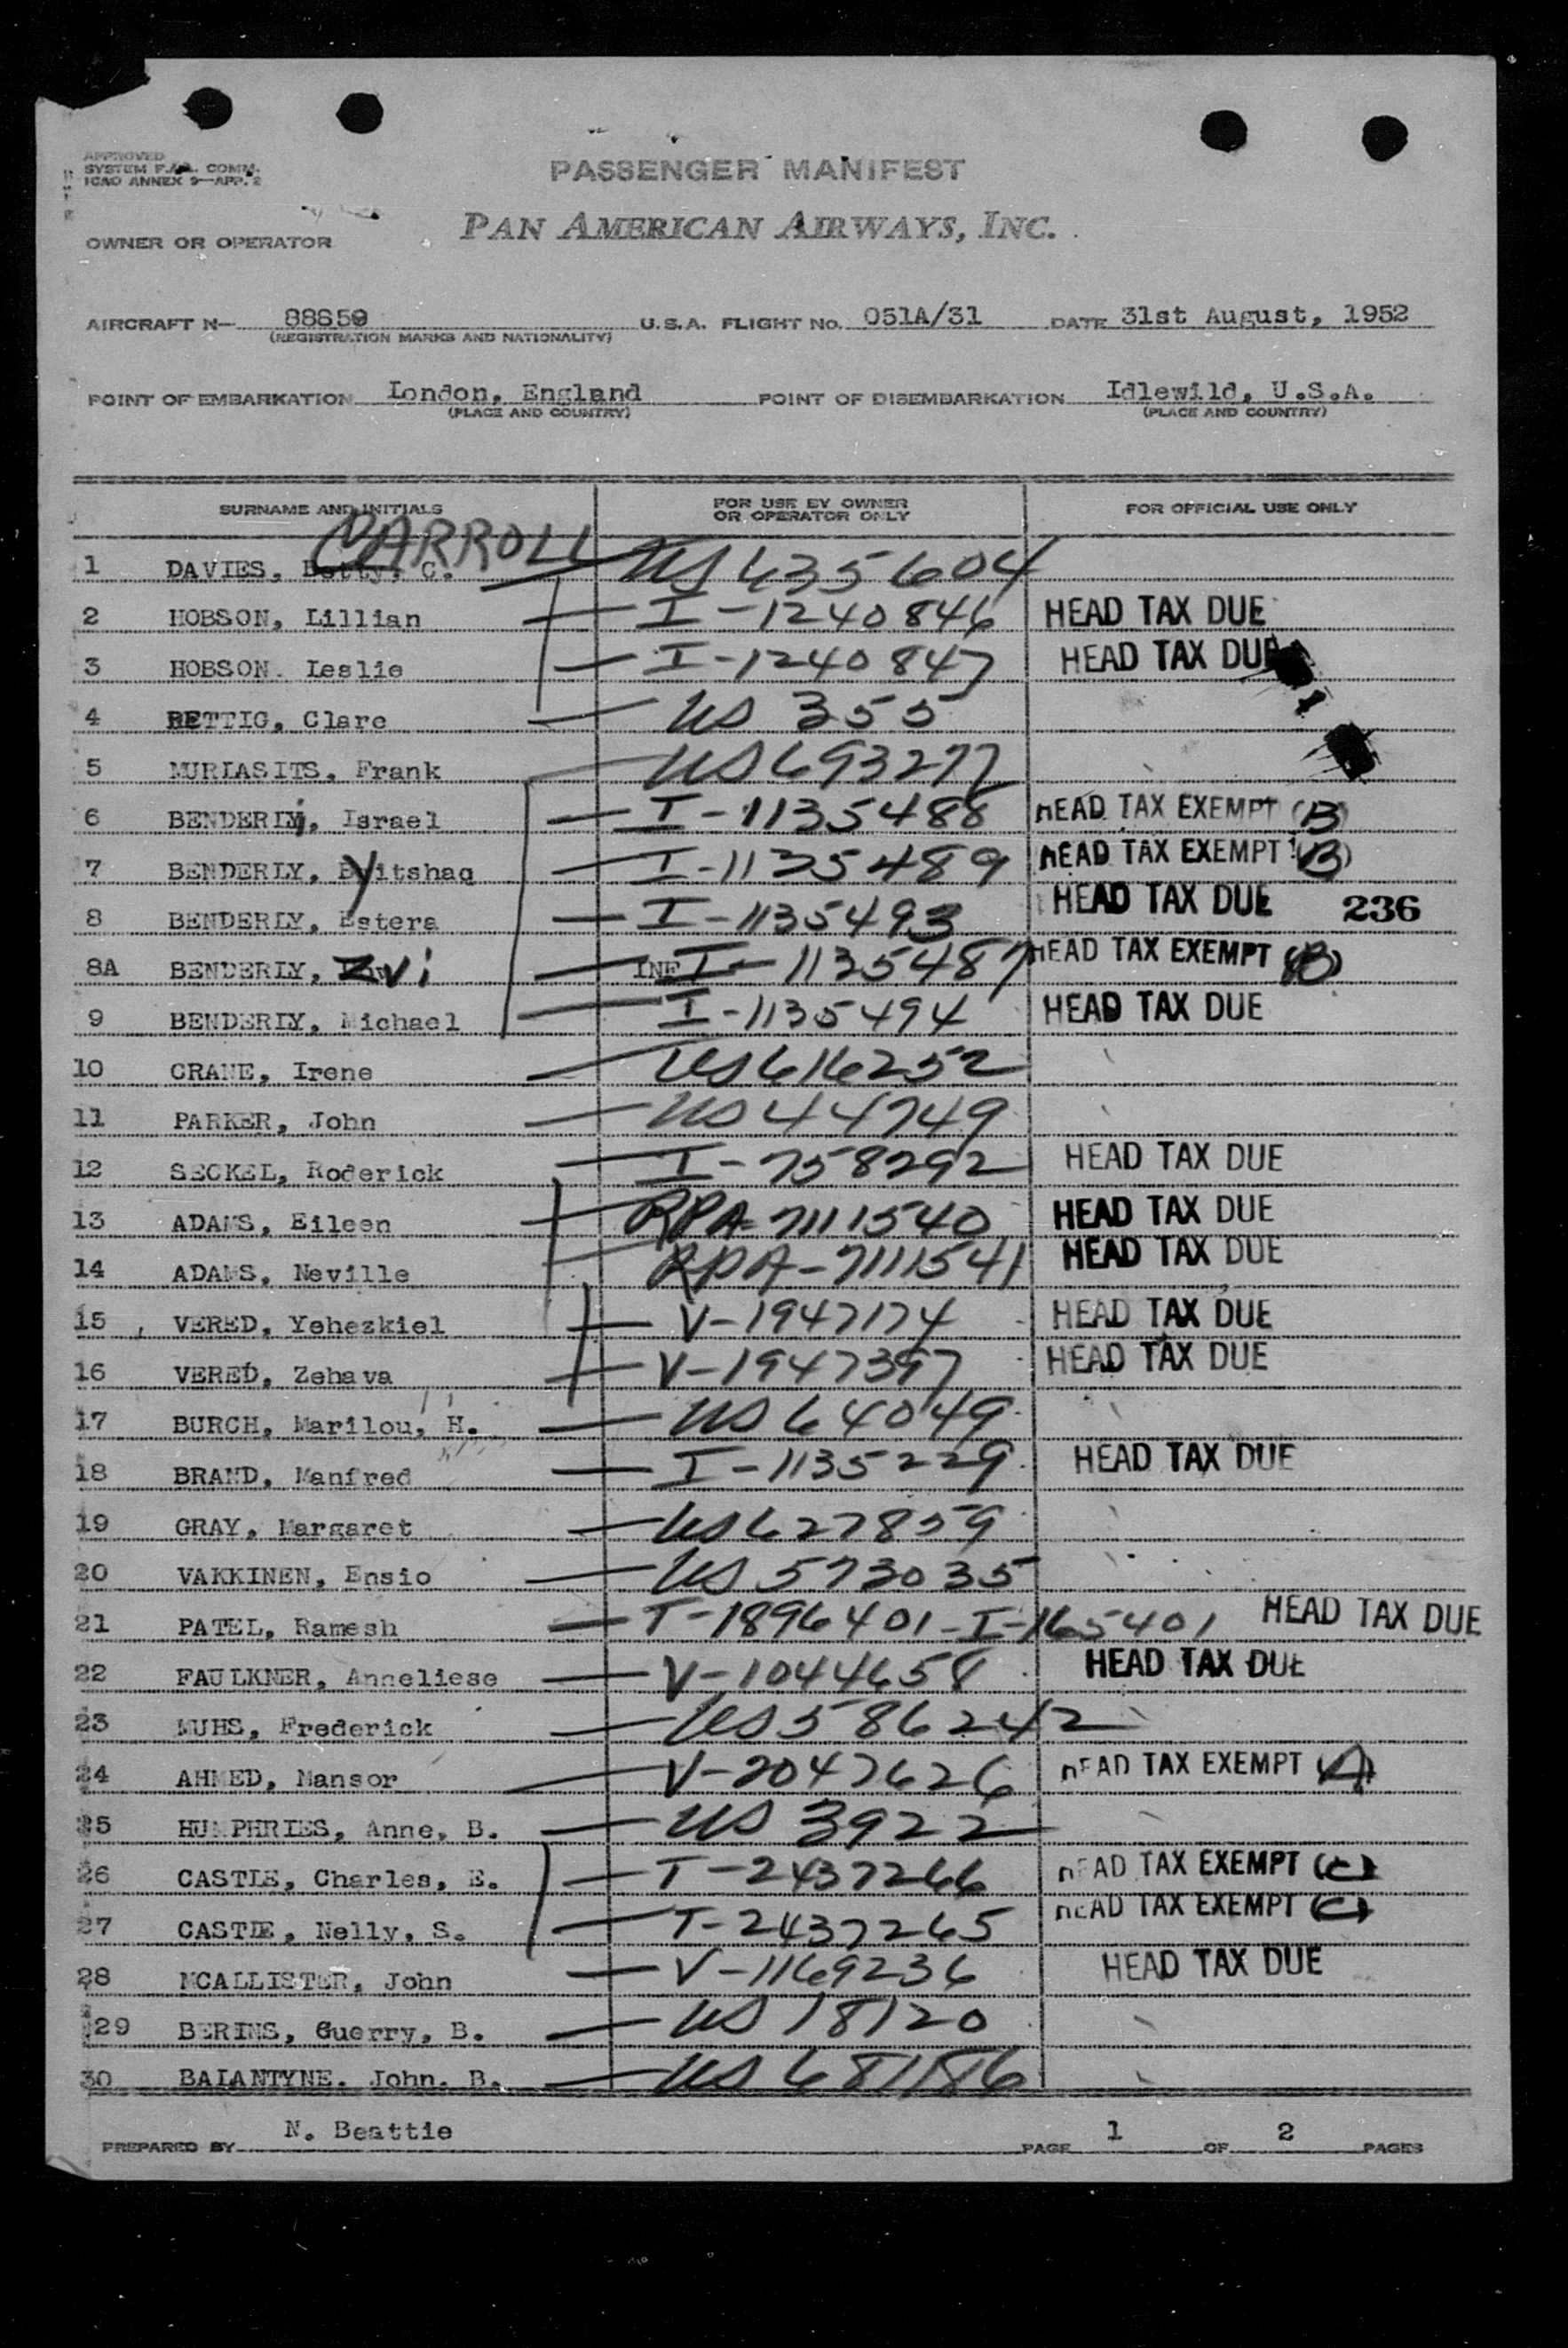 APPROVED
SYSTEM F.A. COMM.
ICAO ANNEX 9—APP. 2
PASSENGER MANIFEST
PAN AMERICAN AIRWAYS, INC.
OWNER OR OPERATOR
AIRCRAFT N— 88859 U.S.A. FLIGHT No. 051A/31 DATE 31st August, 1952
(REGISTRATION MARKS AND NATIONALITY)
POINT OF EMBARKATION London, England POINT OF DISEMBARKATION Idlewild, U.S.A.
(PLACE AND COUNTRY) (PLACE AND COUNTRY)
SURNAME AND INITIALS FOR USE BY OWNER OR OPERATOR ONLY FOR OFFICIAL USE ONLY
CARROLL
1 DAVIES, Betty, C. US 635604
2 HOBSON, Lillian I-1240846 HEAD TAX DUE
3 HOBSON. Leslie I-1240847 HEAD TAX DUE
4 RETTIG, Clare US 355
5 MURIASITS, Frank US 693277
6 BENDERLY, Israel I-1135488 HEAD TAX EXEMPT (B)
7 BENDERLY, Yitshaq I-1135489 HEAD TAX EXEMPT (B)
8 BENDERLY, Estera I-1135493 HEAD TAX DUE 236
8A BENDERLY, Zvi INF I-1135487 HEAD TAX EXEMPT (B)
9 BENDERLY, Michael I-1135494 HEAD TAX DUE
10 CRANE, Irene US 616252
11 PARKER, John US 44749
12 SECKEL, Roderick I-758292 HEAD TAX DUE
13 ADAMS, Eileen RPA-7111540 HEAD TAX DUE
14 ADAMS, Neville RPA-7111541 HEAD TAX DUE
15 VERED, Yehezkiel V-1947174 HEAD TAX DUE
16 VERED, Zehava V-1947397 HEAD TAX DUE
17 BURCH, Marilou, H. US 64049
18 BRAND, Manfred I-1135229 HEAD TAX DUE
19 GRAY, Margaret US 627859
20 VAKKINEN, Ensio US 573035
21 PATEL, Ramesh T-1896401-I-165401 HEAD TAX DUE
22 FAULKNER, Anneliese V-1044658 HEAD TAX DUE
23 MUHS, Frederick US 586242
24 AHMED, Mansor V-2047626 HEAD TAX EXEMPT (A)
25 HUMPHRIES, Anne, B. US 3922
26 CASTLE, Charles, E. T-2437266 HEAD TAX EXEMPT (C)
27 CASTLE, Nelly, S. T-2437265 HEAD TAX EXEMPT (C)
28 MCALLISTER, John V-1169236 HEAD TAX DUE
29 BERINS, Guerry, B. US 18120
30 BALANTYNE. John. B. US 681186
PREPARED BY N. Beattie PAGE 1 OF 2 PAGES